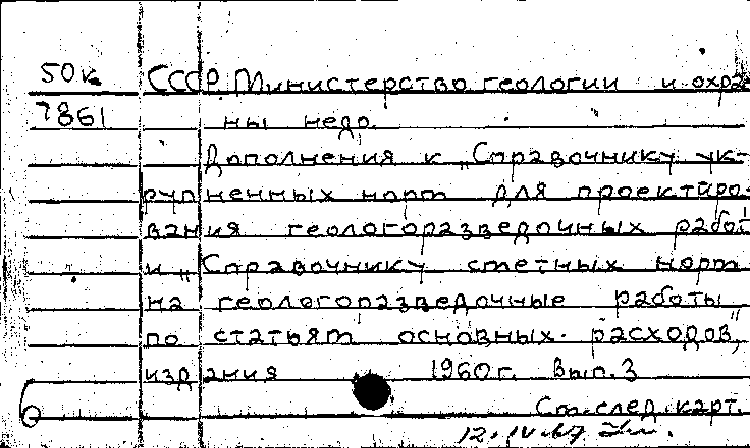 50 к. СССР. Министерство геологии и охра-
7861 ны недр.
Дополнения к „Справочнику ук-
рупненных норм для проектиро-
вания геологоразведочных работ"
и „Справочнику сметных норм
на геологоразведочные работы
по статьям основных расходов,"
издания 1960 г. Вып. 3
См. след. карт.
12.IV.67